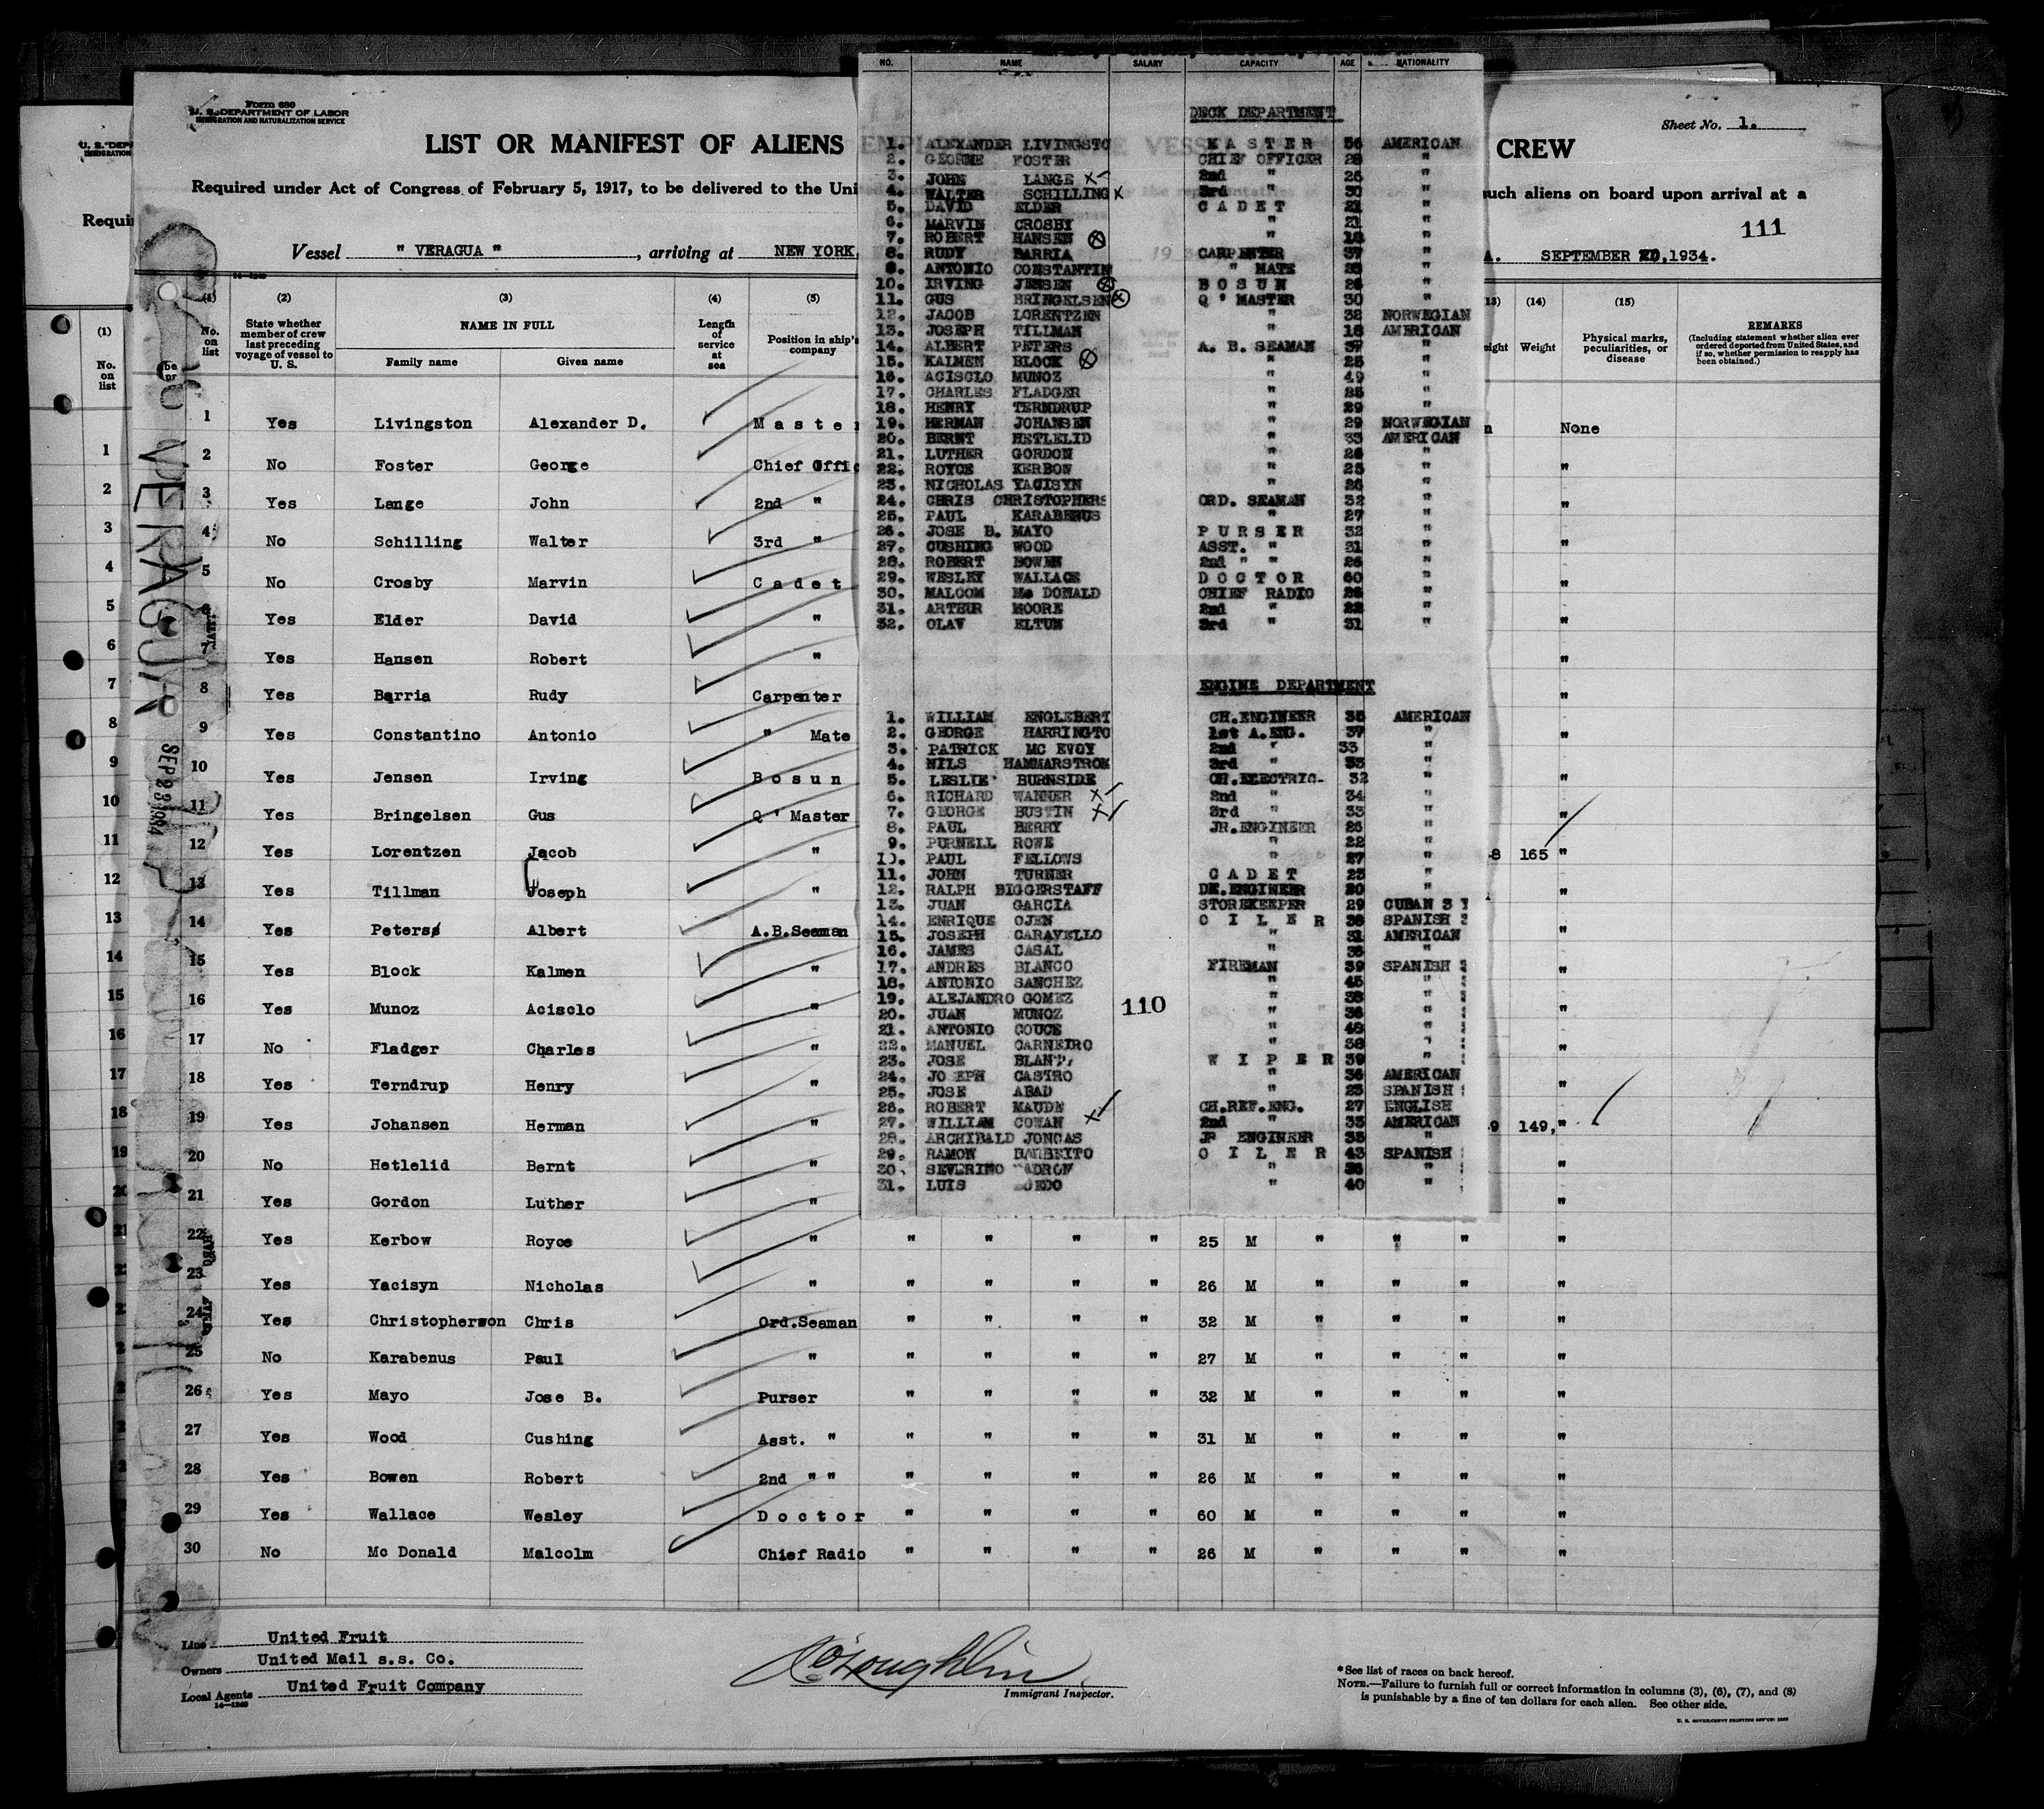 Form 680
U. S. DEPARTMENT OF LABOR
IMMIGRATION AND NATURALIZATION SERVICE
Sheet No. 1.
LIST OR MANIFEST OF ALIENS CREW
Required under Act of Congress of February 5, 1917, to be delivered to the Uni such aliens on board upon arrival at a
111
Vessel " VERAGUA " , arriving at NEW YORK, SEPTEMBER 20,1934.
(1) (2) (3) (4) (5) (13) (14) (15)
No. on list
State whether member of crew last preceding voyage of vessel to U. S.
NAME IN FULL
Family name Given name
Length of service at sea
Position in ship's company
Weight
Physical marks, peculiarities, or disease
REMARKS
(Including statement whether alien ever ordered deported from United States, and if so, whether permission to reapply has been obtained.)
1 Yes Livingston Alexander D. Maste None
2 No Foster George Chief Offic "
3 Yes Lange John 2nd " "
4 No Schilling Walter 3rd " "
5 No Crosby Marvin Cadet "
6 Yes Elder David " "
7 Yes Hansen Robert " "
8 Yes Barria Rudy Carpenter "
9 Yes Constantino Antonio " Mate "
10 Yes Jensen Irving Bosun "
11 Yes Bringelsen Gus Q ' Master "
12 Yes Lorentzen Jacob " 8 165 "
13 Yes Tillman Joseph " "
14 Yes Peters Albert A.B.Seaman "
15 Yes Block Kalmen " "
16 Yes Munoz Acisclo " "
17 No Fladger Charles " "
18 Yes Terndrup Henry " "
19 Yes Johansen Herman " 9 149, "
20 No Hetlelid Bernt " "
21 Yes Gordon Luther " "
22 Yes Kerbow Royce " " " " " 25 M " " " "
23 Yes Yacisyn Nicholas " " " " 26 M " " " "
24 Yes Christopherson Chris Ord.Seaman " " " " 32 M " " " "
25 No Karabenus Paul " " " " " 27 M " " " "
26 Yes Mayo Jose B. Purser " " " " 32 M " " " "
27 Yes Wood Cushing Asst. " " " " " 31 M " " " "
28 Yes Bowen Robert 2nd " " " " " " 26 M " " " "
29 Yes Wallace Wesley Doctor " " " " 60 M " " " "
30 No Mc Donald Malcolm Chief Radio " " " " 26 M " " " "
VERAGUA
SEP 23 1934
NO. NAME SALARY CAPACITY AGE NATIONALITY
DECK DEPARTMENT
1. ALEXANDER LIVINGSTO MASTER 56 AMERICAN
2. GEORGE FOSTER CHIEF OFFICER 28 "
3. JOHN LANGE X 2nd " 26 "
4. WALTER SCHILLING X 3rd " 30 "
5. DAVID ELDER CADET 21 "
6. MARVIN CROSBY " 21 "
7. ROBERT HANSEN X " 18 "
8. RUDY BARRIA CARPENTER 37 "
9. ANTONIO CONSTANTIN " MATE 28 "
10. IRVING JENSEN X BOSUN 26 "
11. GUS BRINGELSEN X Q ' MASTER 30 "
12. JACOB LORENTZEN " 32 NORWEGIAN
13. JOSEPH TILLMAN " 18 AMERICAN
14. ALBERT PETERS A. B. SEAMAN 37 "
15. KALMEN BLOCK X " 25 "
16. ACISCLO MUNOZ " 49 "
17. CHARLES FLADGER " 25 "
18. HENRY TERNDRUP " 29 "
19. HERMAN JOHANSEN " 29 NORWEGIAN
20. BERNT HETLELID " 33 AMERICAN
21. LUTHER GORDON " 26 "
22. ROYCE KERBOW " 25 "
23. NICHOLAS YACISYN " 26 "
24. CHRIS CHRISTOPHERS ORD. SEAMAN 32 "
25. PAUL KARABENUS " 27 "
26. JOSE B. MAYO PURSER 32 "
27. CUSHING WOOD ASST. " 31 "
28. ROBERT BOWEN 2nd " " 26 "
29. WESLEY WALLACE DOCTOR 60 "
30. MALCOM Mc DONALD CHIEF RADIO 26 "
31. ARTHUR MOORE 2nd " 22 "
32. OLAV ELTUN 3rd " 31 "
ENGINE DEPARTMENT
1. WILLIAM ENGLEBERT CH.ENGINEER 35 AMERICAN
2. GEORGE HARRINGTO 1st A.ENG. 37 "
3. PATRICK MC EVOY 2nd " 33 "
4. NILS HAMMARSTROM 3rd " 33 "
5. LESLIE BURNSIDE CH.ELECTRIC- 32 "
6. RICHARD WANNER X 2nd " 34 "
7. GEORGE BUSTIN X 3rd " 33 "
8. PAUL BERRY JR.ENGINEER 25 "
9. PURNELL ROWE " 22 "
10. PAUL FELLOWS " 27 "
11. JOHN TURNER CADET 23 "
12. RALPH BIGGERSTAFF DK.ENGINEER 20 "
13. JUAN GARCIA STOREKEEPER 29 CUBAN
14. ENRIQUE OJEN OILER 38 SPANISH
15. JOSEPH CARAVELLO " 31 AMERICAN
16. JAMES CASAL " 36 "
17. ANDRES BLANCO FIREMAN 39 SPANISH
18. ANTONIO SANCHEZ " 45 "
19. ALEJANDRO GOMEZ " 38 "
20. JUAN MUNOZ " 36 "
21. ANTONIO COUCE " 48 "
22. MANUEL CARNEIRO " 38 "
23. JOSE WIPER 39 "
24. JOSEPH CASTRO " 36 AMERICAN
25. JOSE ABAD " 23 SPANISH
26. ROBERT MAUDE CH.REF.ENG. 27 ENGLISH
27. WILLIAM COWAN X 2nd " 33 AMERICAN
28. ARCHIBALD JONCAS JR ENGINEER 35 "
29. RAMON BARBEITO OILER 43 SPANISH
30. SEVERINO " "
31. LUIS " 40 "
110
Line United Fruit
Owners United Mail s.s. Co.
Local Agents United Fruit Company
14-1240
Immigrant Inspector.
*See list of races on back hereof.
NOTE.—Failure to furnish full or correct information in columns (3), (6), (7), and (8)
is punishable by a fine of ten dollars for each alien. See other side.